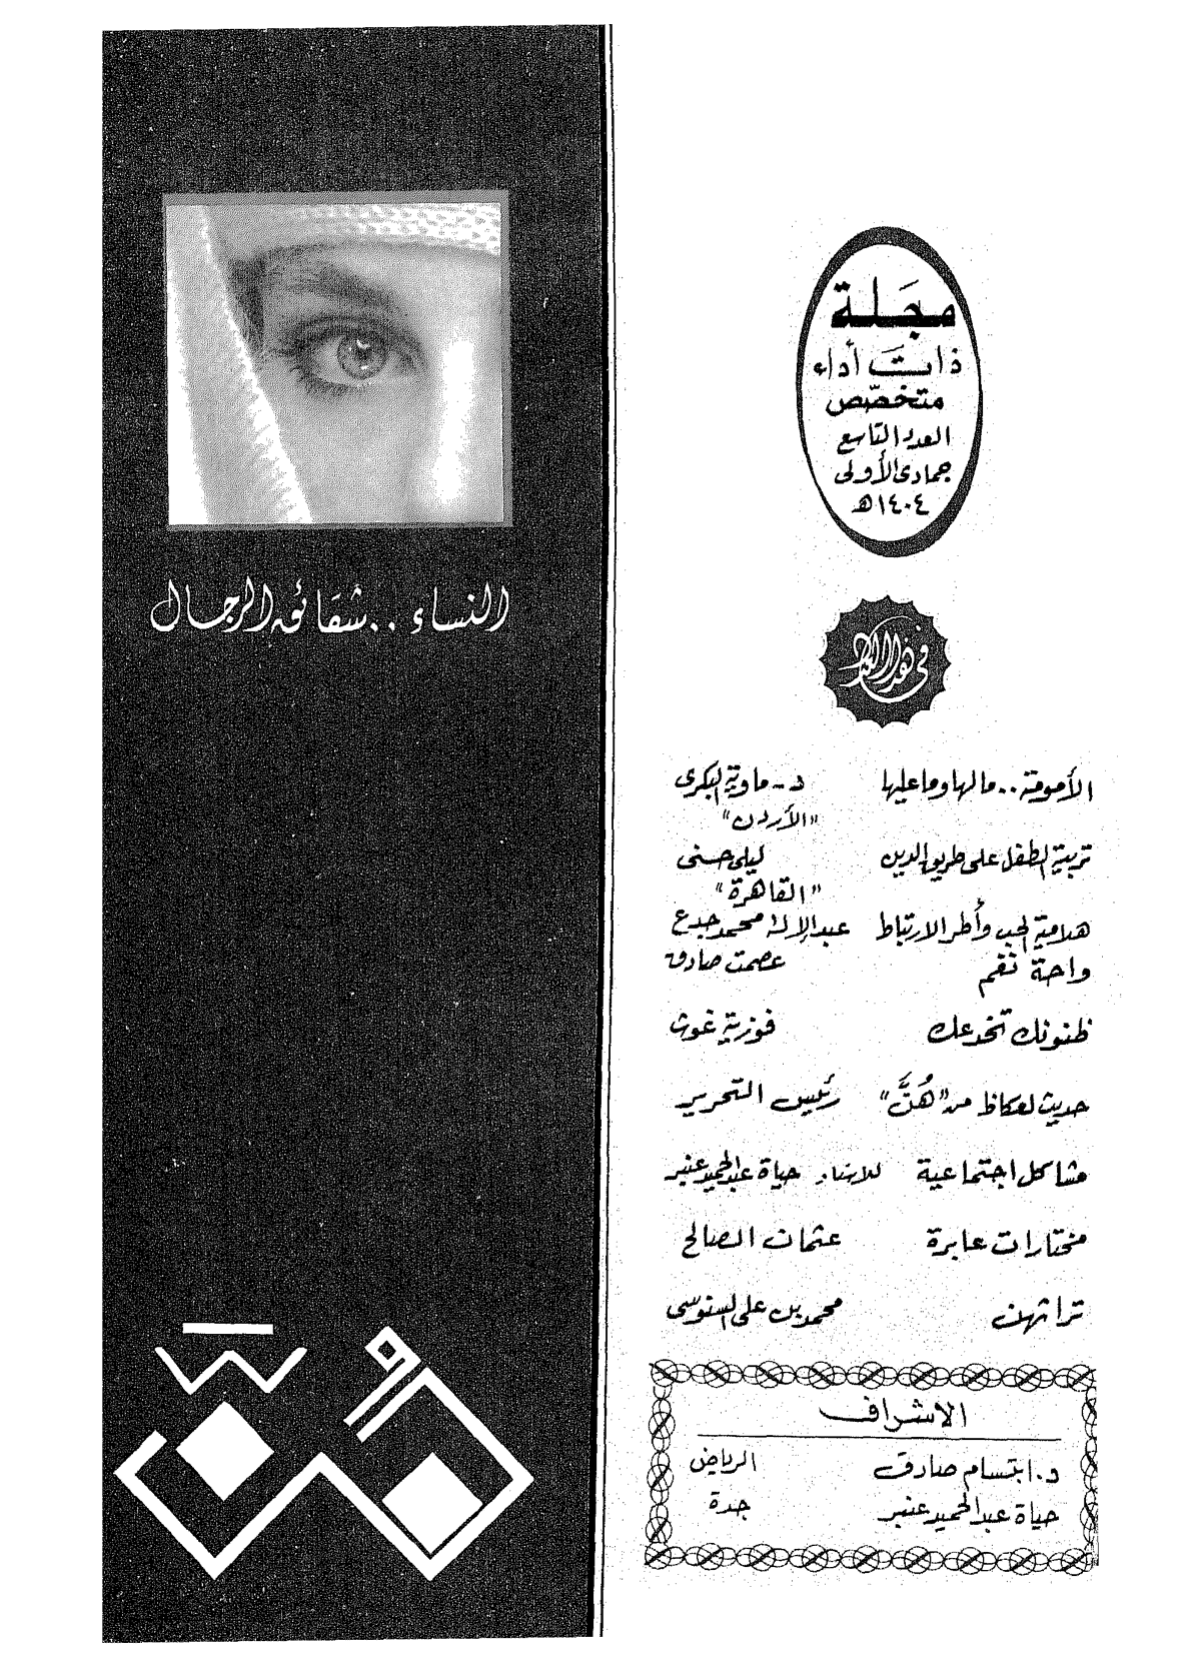 مجَلة
ذات أداء
متخصّص
العدد التاسع
جمادى الأولى
١٤٠٤هـ
في هذا العدد
الأمومة..مالها وما عليها د-ماوية البكرى
"الأردن"
تربية الطفل على طريق الدين ليلى حسنى
"القاهرة"
هلامية الحب وأطر الارتباط عبدالإله محمد جدع
واحة نغم عصمت صادق
ظنونك تخدعك فوزية غوث
حديث لعكاظ من "هُنَّ" رئيس التحرير
مشاكل اجتماعية حياة عبدالحميد عنبر
مختارات عابرة عثمان الصالح
تراثهن محمد بن على السنوسى
الاشراف
د.ابتسام صادق الرياض
حياة عبدالحميد عنبر جدة
النساء..شقائق الرجال
هُنَّ